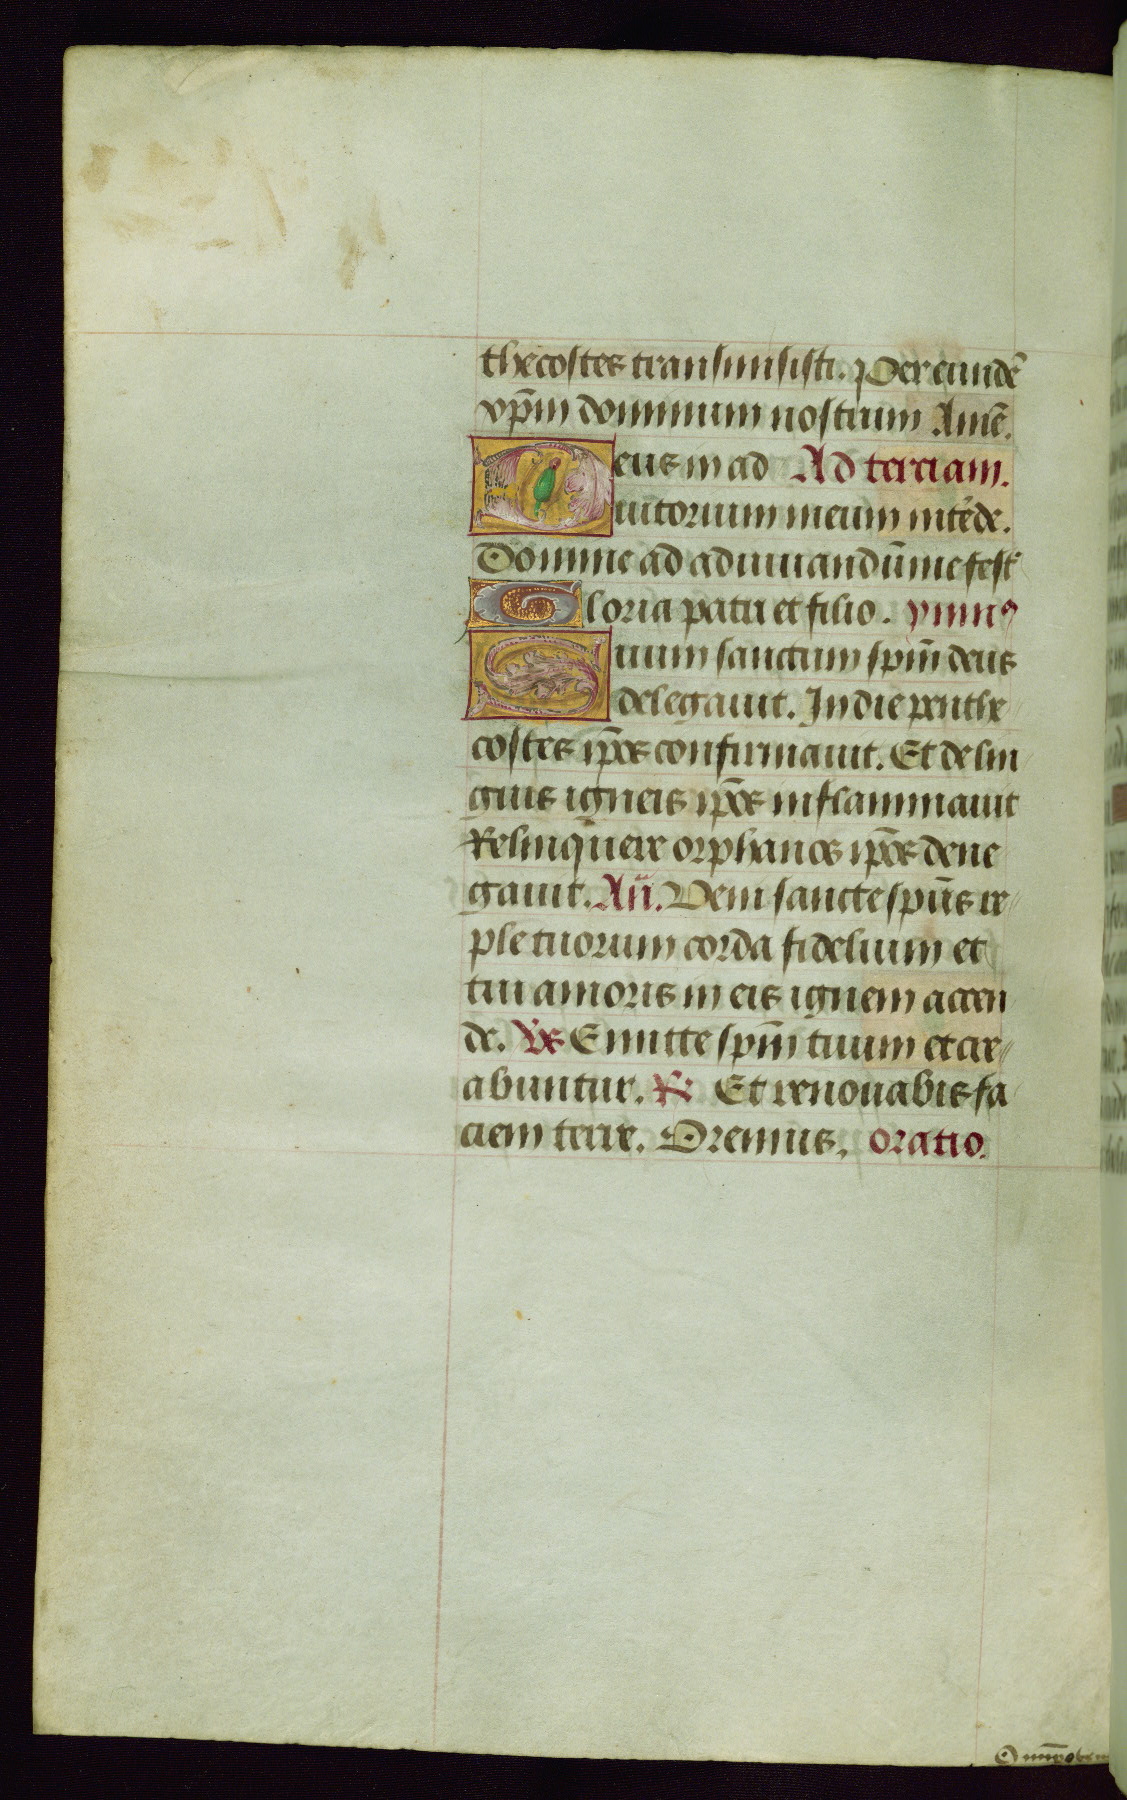 thecostes transmisisti. Per eundē
xp̄m dominum nostrum Amē.
Deus in ad Ad terciam.
iutorium meum intēde.
Domine ad adiuuandūme festi
Gloria patri et filio. ymnus
Suum sanctum sp̄m deus
delegauit. In die penthe
costes ip̄os confirmauit. Et de lin
guis igneis ip̄os inflammauit
Relinquere orphanos ip̄os dene
gauit. Añ. Veni sancte sp̄us re
ple tuorum corda fidelium et
tui amoris in eis ignem accen
de. V̄s Emitte sp̄m tuum et cre
abuntur. R̄ Et renouabis fa
ciem terre. Oremus. oratio.